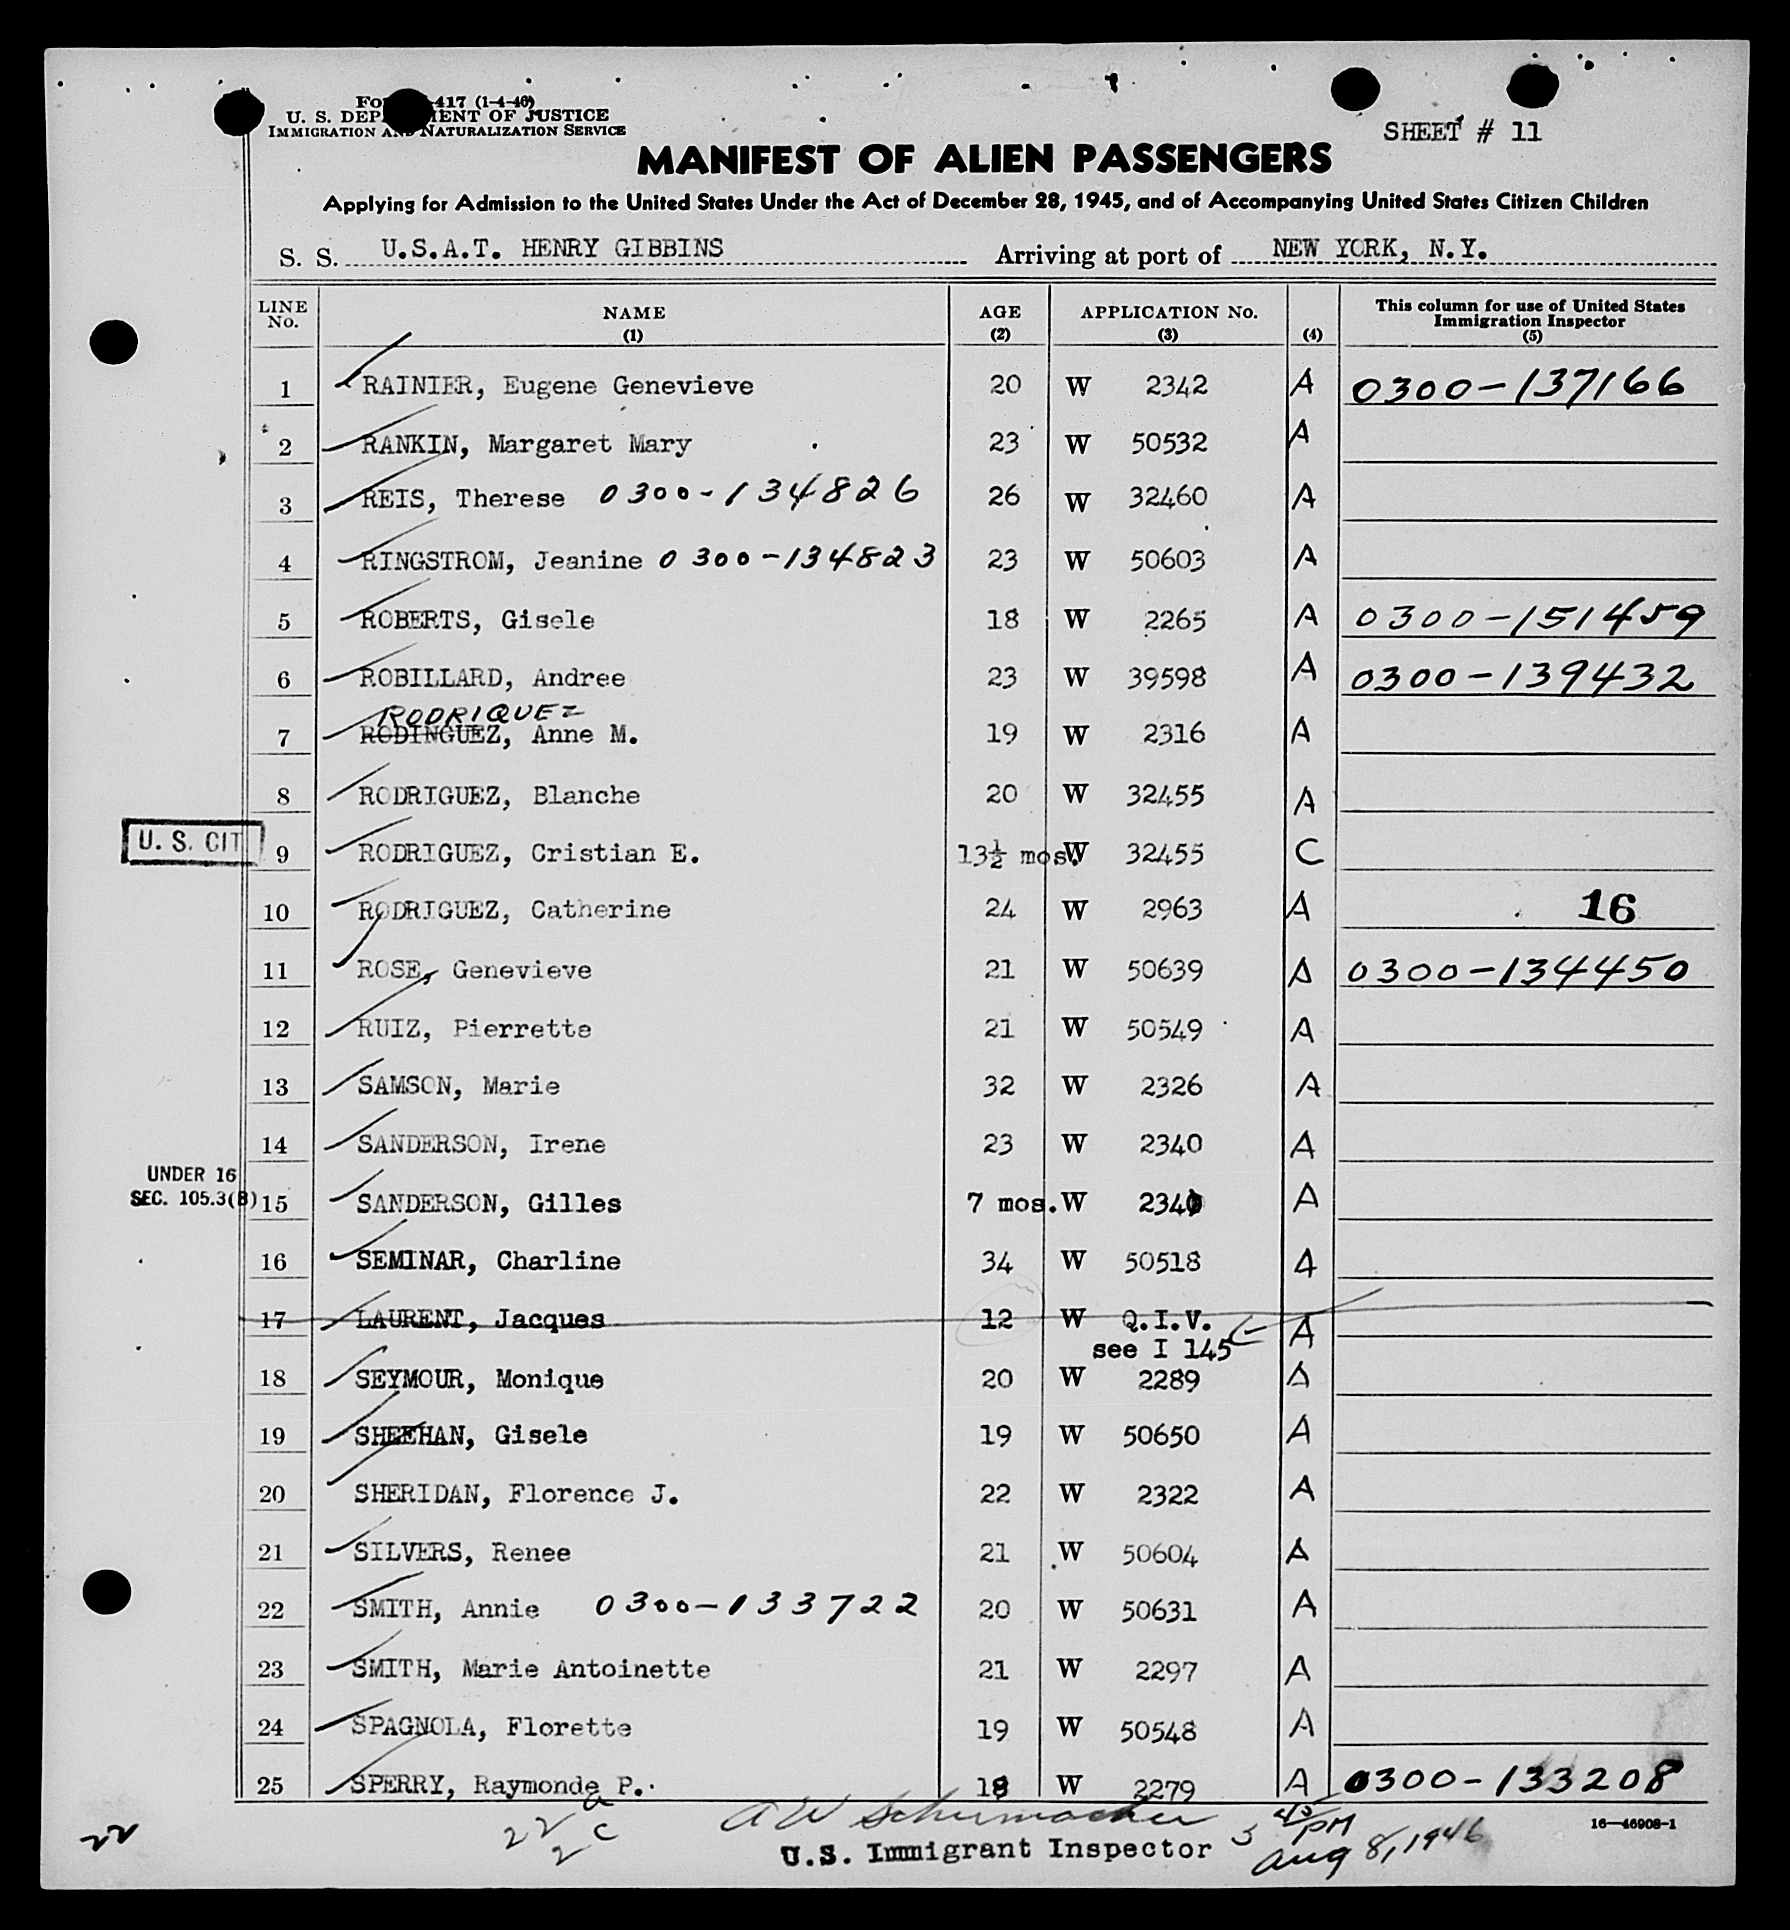 417 (1-4-46)
SHEET # 11
U. S. DEP MENT OF JUSTICE
IMMIGRATION AND NATURALIZATION SERVICE
MANIFEST OF ALIEN PASSENGERS
Applying for Admission to the United States Under the Act of December 28, 1945, and of Accompanying United States Citizen Children
S. S. U.S.A.T. HENRY GIBBINS Arriving at port of NEW YORK, N.Y.
LINE No. NAME (1) AGE (2) APPLICATION No. (3) (4) This column for use of United States Immigration Inspector (5)
1 RAINIER, Eugene Genevieve 20 W 2342 A 0300-137166
2 RANKIN, Margaret Mary 23 W 50532 A
3 REIS, Therese 0300-134826 26 W 32460 A
4 RINGSTROM, Jeanine 0300-134823 23 W 50603 A
5 ROBERTS, Gisele 18 W 2265 A 0300-151459
6 ROBILLARD, Andree 23 W 39598 A 0300-139432
RODRIQUEZ
7 RODINGUEZ, Anne M. 19 W 2316 A
8 RODRIGUEZ, Blanche 20 W 32455 A
U. S. CIT 9 RODRIGUEZ, Cristian E. 13½ mos. W 32455 C
10 RODRIGUEZ, Catherine 24 W 2963 A 16
11 ROSE, Genevieve 21 W 50639 A 0300-134450
12 RUIZ, Pierrette 21 W 50549 A
13 SAMSON, Marie 32 W 2326 A
14 SANDERSON, Irene 23 W 2340 A
UNDER 16
SEC. 105.3(B) 15 SANDERSON, Gilles 7 mos. W 2340 A
16 SEMINAR, Charline 34 W 50518 A
17 LAURENT, Jacques 12 W Q.I.V. A
see I 145
18 SEYMOUR, Monique 20 W 2289 A
19 SHEEHAN, Gisele 19 W 50650 A
20 SHERIDAN, Florence J. 22 W 2322 A
21 SILVERS, Renee 21 W 50604 A
22 SMITH, Annie 0300-133722 20 W 50631 A
23 SMITH, Marie Antoinette 21 W 2297 A
24 SPAGNOLA, Florette 19 W 50548 A
25 SPERRY, Raymonde P. 18 W 2279 A 0300-133208
22 22 a
2 c
A W Schumacher
U.S. Immigrant Inspector
PM
Aug 8, 1946
16—46908-1